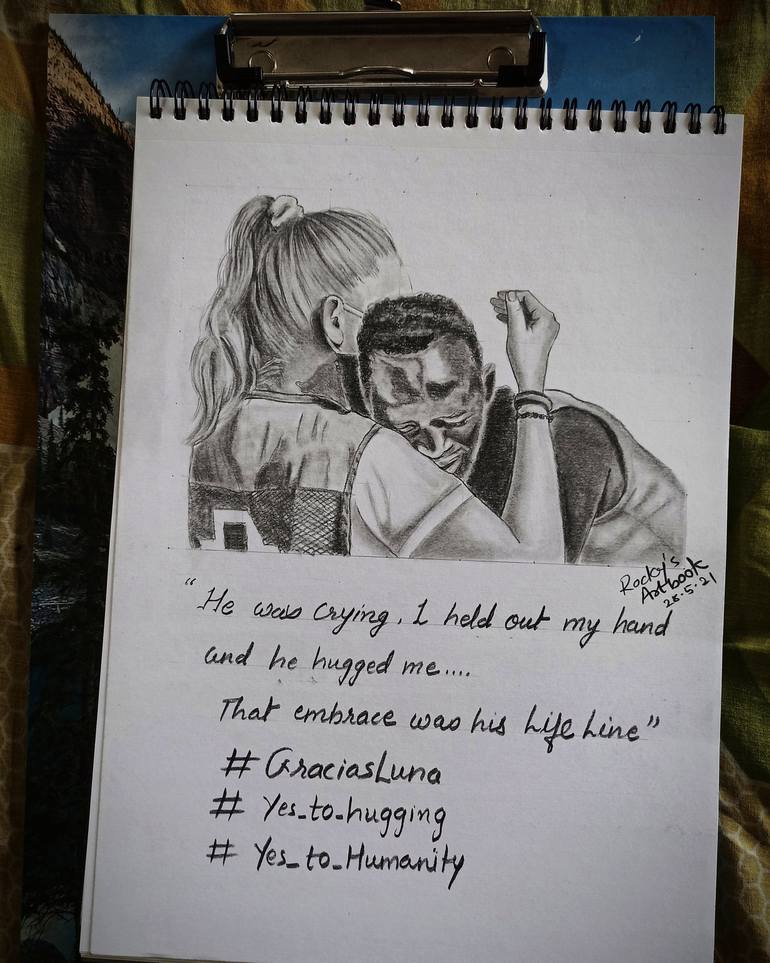 Rocky's
Artbook
28.5.21
"He was crying. I held out my hand
and he hugged me....
That embrace was his Life Line"
# GraciasLuna
# Yes_to_hugging
# Yes_to_Humanity